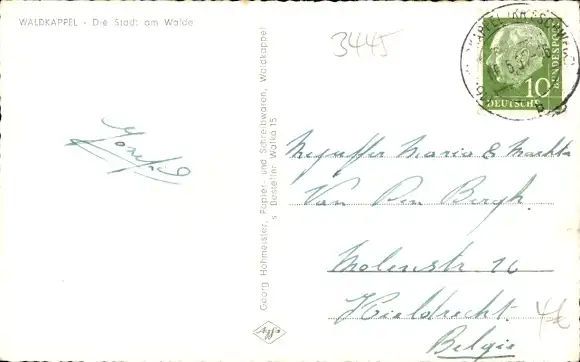 WALDKAPPEL - Die Stadt am Walde
3445
DEUTSCHE BUNDESPOST
10
Jozef
Georg Hohmeister, Papier- und Schreibwaren, Waldkappel
s Bestellnr Walka 15
Mejuffer Maria & Martha
Van Den Bergh.
Molenstr 16
Kieldrecht.
Belgie
4€